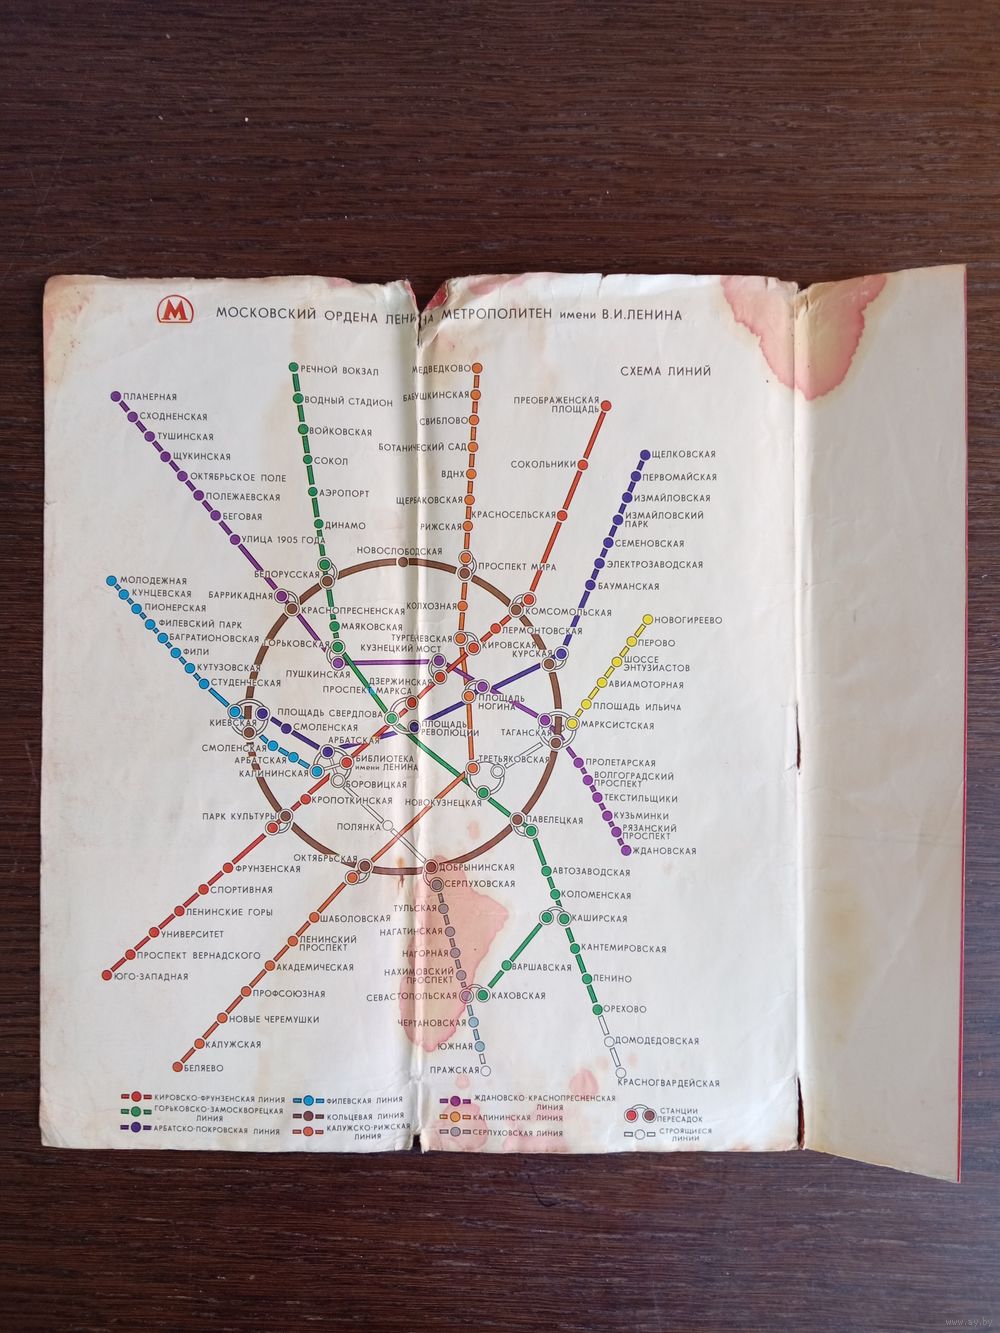 М
МОСКОВСКИЙ ОРДЕНА ЛЕНИНА МЕТРОПОЛИТЕН имени В.И.ЛЕНИНА
СХЕМА ЛИНИЙ
РЕЧНОЙ ВОКЗАЛ
ВОДНЫЙ СТАДИОН
ВОЙКОВСКАЯ
СОКОЛ
АЭРОПОРТ
ДИНАМО
МЕДВЕДКОВО
БАБУШКИНСКАЯ
СВИБЛОВО
БОТАНИЧЕСКИЙ САД
ВДНХ
ЩЕРБАКОВСКАЯ
РИЖСКАЯ
ПРЕОБРАЖЕНСКАЯ
ПЛОЩАДЬ
СОКОЛЬНИКИ
КРАСНОСЕЛЬСКАЯ
ЩЕЛКОВСКАЯ
ПЕРВОМАЙСКАЯ
ИЗМАЙЛОВСКАЯ
ИЗМАЙЛОВСКИЙ
ПАРК
СЕМЕНОВСКАЯ
ЭЛЕКТРОЗАВОДСКАЯ
БАУМАНСКАЯ
ПЛАНЕРНАЯ
СХОДНЕНСКАЯ
ТУШИНСКАЯ
ЩУКИНСКАЯ
ОКТЯБРЬСКОЕ ПОЛЕ
ПОЛЕЖАЕВСКАЯ
БЕГОВАЯ
УЛИЦА 1905 ГОДА
НОВОСЛОБОДСКАЯ
БЕЛОРУССКАЯ
ПРОСПЕКТ МИРА
БАРРИКАДНАЯ
КРАСНОПРЕСНЕНСКАЯ
КОЛХОЗНАЯ
КОМСОМОЛЬСКАЯ
МАЯКОВСКАЯ
ЛЕРМОНТОВСКАЯ
ГОРЬКОВСКАЯ
ТУРГЕНЕВСКАЯ
КУЗНЕЦКИЙ МОСТ
КИРОВСКАЯ
КУРСКАЯ
ПУШКИНСКАЯ
ДЗЕРЖИНСКАЯ
ПРОСПЕКТ МАРКСА
ПЛОЩАДЬ
НОГИНА
ПЛОЩАДЬ СВЕРДЛОВА
ПЛОЩАДЬ
РЕВОЛЮЦИИ
ТАГАНСКАЯ
МАРКСИСТСКАЯ
НОВОГИРЕЕВО
ПЕРОВО
ШОССЕ
ЭНТУЗИАСТОВ
АВИАМОТОРНАЯ
ПЛОЩАДЬ ИЛЬИЧА
МОЛОДЕЖНАЯ
КУНЦЕВСКАЯ
ПИОНЕРСКАЯ
ФИЛЕВСКИЙ ПАРК
БАГРАТИОНОВСКАЯ
ФИЛИ
КУТУЗОВСКАЯ
СТУДЕНЧЕСКАЯ
КИЕВСКАЯ
СМОЛЕНСКАЯ
АРБАТСКАЯ
СМОЛЕНСКАЯ
АРБАТСКАЯ
КАЛИНИНСКАЯ
БИБЛИОТЕКА
имени ЛЕНИНА
БОРОВИЦКАЯ
ТРЕТЬЯКОВСКАЯ
КРОПОТКИНСКАЯ
НОВОКУЗНЕЦКАЯ
ПАРК КУЛЬТУРЫ
ПОЛЯНКА
ПАВЕЛЕЦКАЯ
ПРОЛЕТАРСКАЯ
ВОЛГОГРАДСКИЙ
ПРОСПЕКТ
ТЕКСТИЛЬЩИКИ
КУЗЬМИНКИ
РЯЗАНСКИЙ
ПРОСПЕКТ
ЖДАНОВСКАЯ
ОКТЯБРЬСКАЯ
ДОБРЫНИНСКАЯ
СЕРПУХОВСКАЯ
ФРУНЗЕНСКАЯ
СПОРТИВНАЯ
ЛЕНИНСКИЕ ГОРЫ
УНИВЕРСИТЕТ
ПРОСПЕКТ ВЕРНАДСКОГО
ЮГО-ЗАПАДНАЯ
ШАБОЛОВСКАЯ
ЛЕНИНСКИЙ
ПРОСПЕКТ
АКАДЕМИЧЕСКАЯ
ПРОФСОЮЗНАЯ
НОВЫЕ ЧЕРЕМУШКИ
КАЛУЖСКАЯ
БЕЛЯЕВО
ТУЛЬСКАЯ
НАГАТИНСКАЯ
НАГОРНАЯ
НАХИМОВСКИЙ
ПРОСПЕКТ
СЕВАСТОПОЛЬСКАЯ
ЧЕРТАНОВСКАЯ
ЮЖНАЯ
ПРАЖСКАЯ
АВТОЗАВОДСКАЯ
КОЛОМЕНСКАЯ
КАШИРСКАЯ
ВАРШАВСКАЯ
КАХОВСКАЯ
КАНТЕМИРОВСКАЯ
ЛЕНИНО
ОРЕХОВО
ДОМОДЕДОВСКАЯ
КРАСНОГВАРДЕЙСКАЯ
КИРОВСКО-ФРУНЗЕНСКАЯ ЛИНИЯ
ГОРЬКОВСКО-ЗАМОСКВОРЕЦКАЯ
ЛИНИЯ
АРБАТСКО-ПОКРОВСКАЯ ЛИНИЯ
ФИЛЕВСКАЯ ЛИНИЯ
КОЛЬЦЕВАЯ ЛИНИЯ
КАЛУЖСКО-РИЖСКАЯ
ЛИНИЯ
ЖДАНОВСКО-КРАСНОПРЕСНЕНСКАЯ
ЛИНИЯ
КАЛИНИНСКАЯ ЛИНИЯ
СЕРПУХОВСКАЯ ЛИНИЯ
СТАНЦИИ
ПЕРЕСАДОК
СТРОЯЩИЕСЯ
ЛИНИИ
www.ay.by